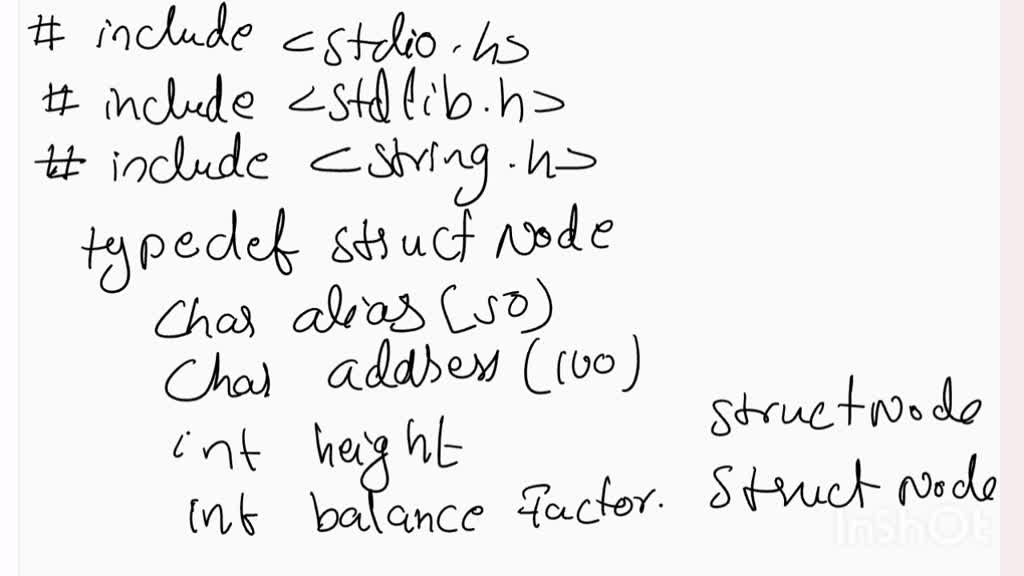 # include <stdio.h>
# include <stdlib.h>
# include <string.h>
typedef struct Node
Char alias (50)
Char address (100)
int height
struct Node
int balance Factor.
Struct Node
InShOt